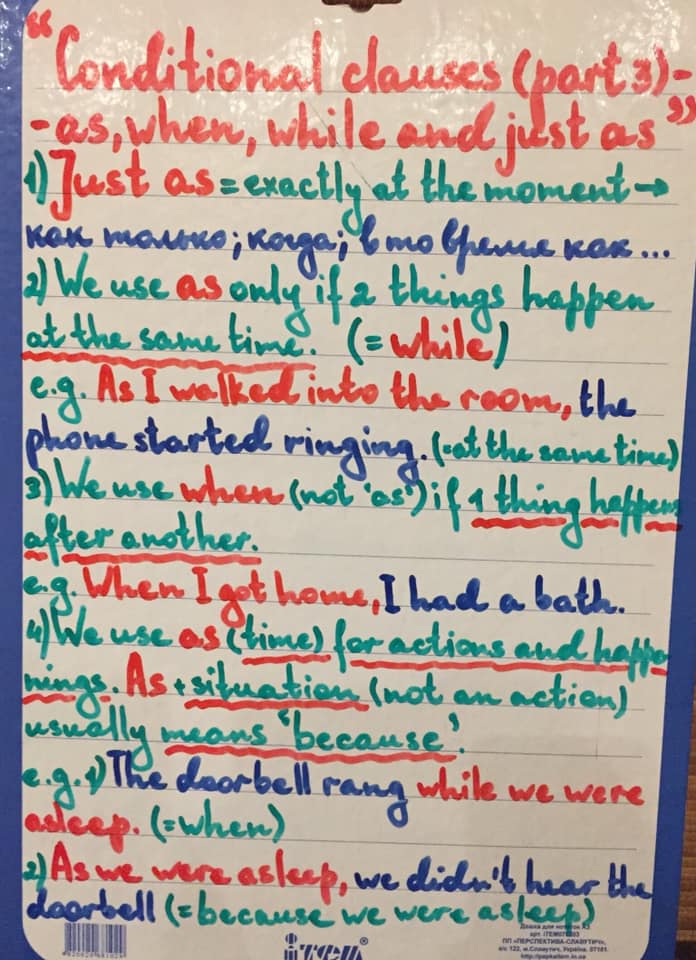 “Conditional clauses (part 3)-
-as, when, while and just as”
1) Just as = exactly at the moment →
как только; когда; в то время как ...
2) We use as only if 2 things happen
at the same time. (= while)
e.g. As I walked into the room, the
phone started ringing. (=at the same time)
3) We use when (not ‘as’) if 1 thing happens
after another.
e.g. When I got home, I had a bath.
4) We use as (time) for actions and happe
nings. As + situation (not an action)
usually means ‘because’.
e.g. 1) The doorbell rang while we were
asleep. (=when)
2) As we were asleep, we didn't hear the
doorbell (=because we were asleep)
iTEM®
Дошка для нотаток А3
ПП «ПЕРСПЕКТИВА-СЛАВУТИЧ»,
а/с 122, м.Славутич, Україна, 07101.